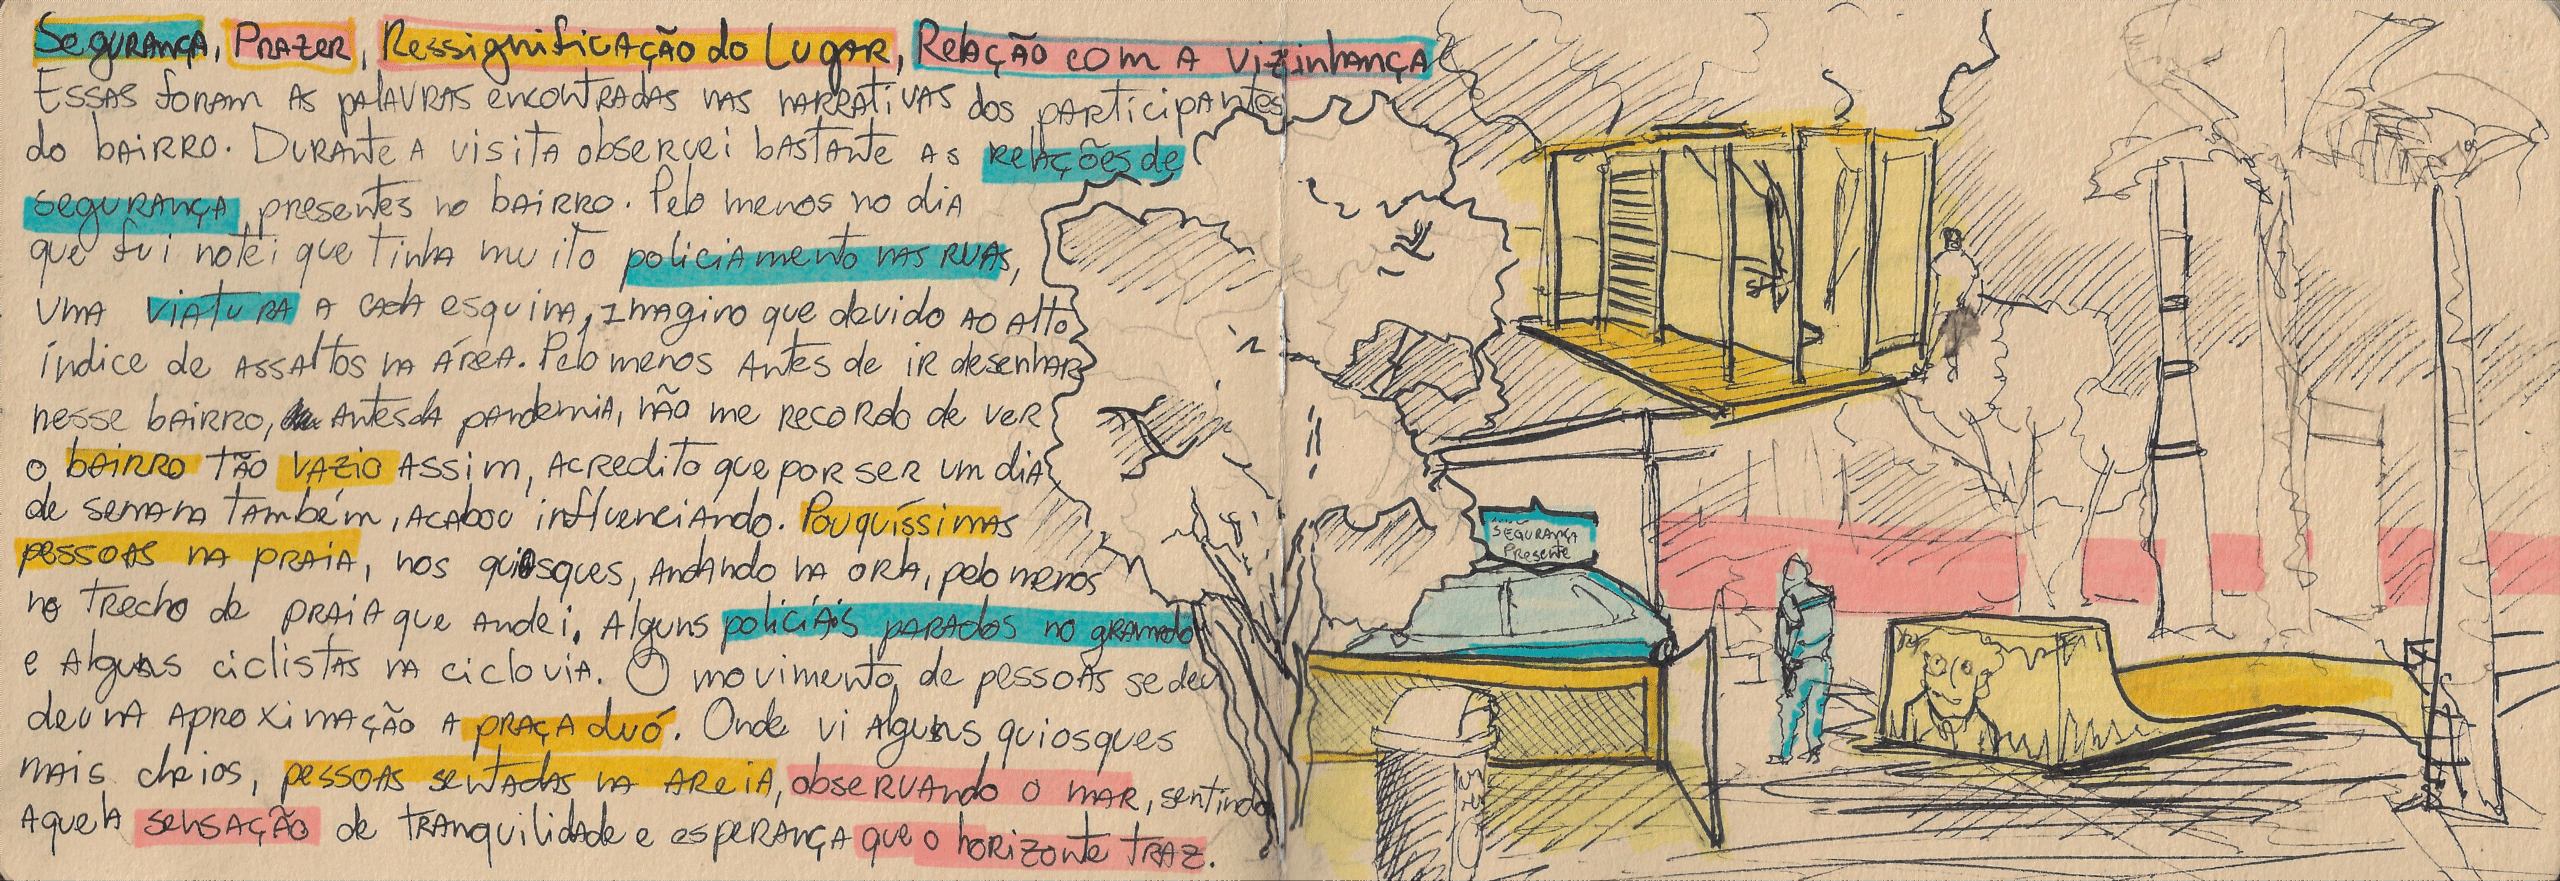 Segurança, Prazer, Ressignificação do Lugar, Relação com a vizinhança
Essas foram as palavras encontradas nas narrativas dos participantes
do bairro. Durante a visita observei bastante as relações de
segurança presentes no bairro. Pelo menos no dia
que fui notei que tinha muito policiamento nas ruas,
uma viatura a cada esquina, imagino que devido ao alto
índice de assaltos na área. Pelo menos antes de ir desenhar
nesse bairro, antes da pandemia, não me recordo de ver
o bairro tão vazio assim, acredito que por ser um dia
de semana também, acabou influenciando. Pouquíssimas
pessoas na praia, nos quiosques, andando na orla, pelo menos
no trecho de praia que andei. Alguns policiais parados no gramado
e alguns ciclistas na ciclovia. O movimento de pessoas se deu
deu na aproximação a praça duó. Onde vi alguns quiosques
mais cheios, pessoas sentadas na areia, observando o mar, sentindo
aquela sensação de tranquilidade e esperança que o horizonte traz.
Segurança
Presente